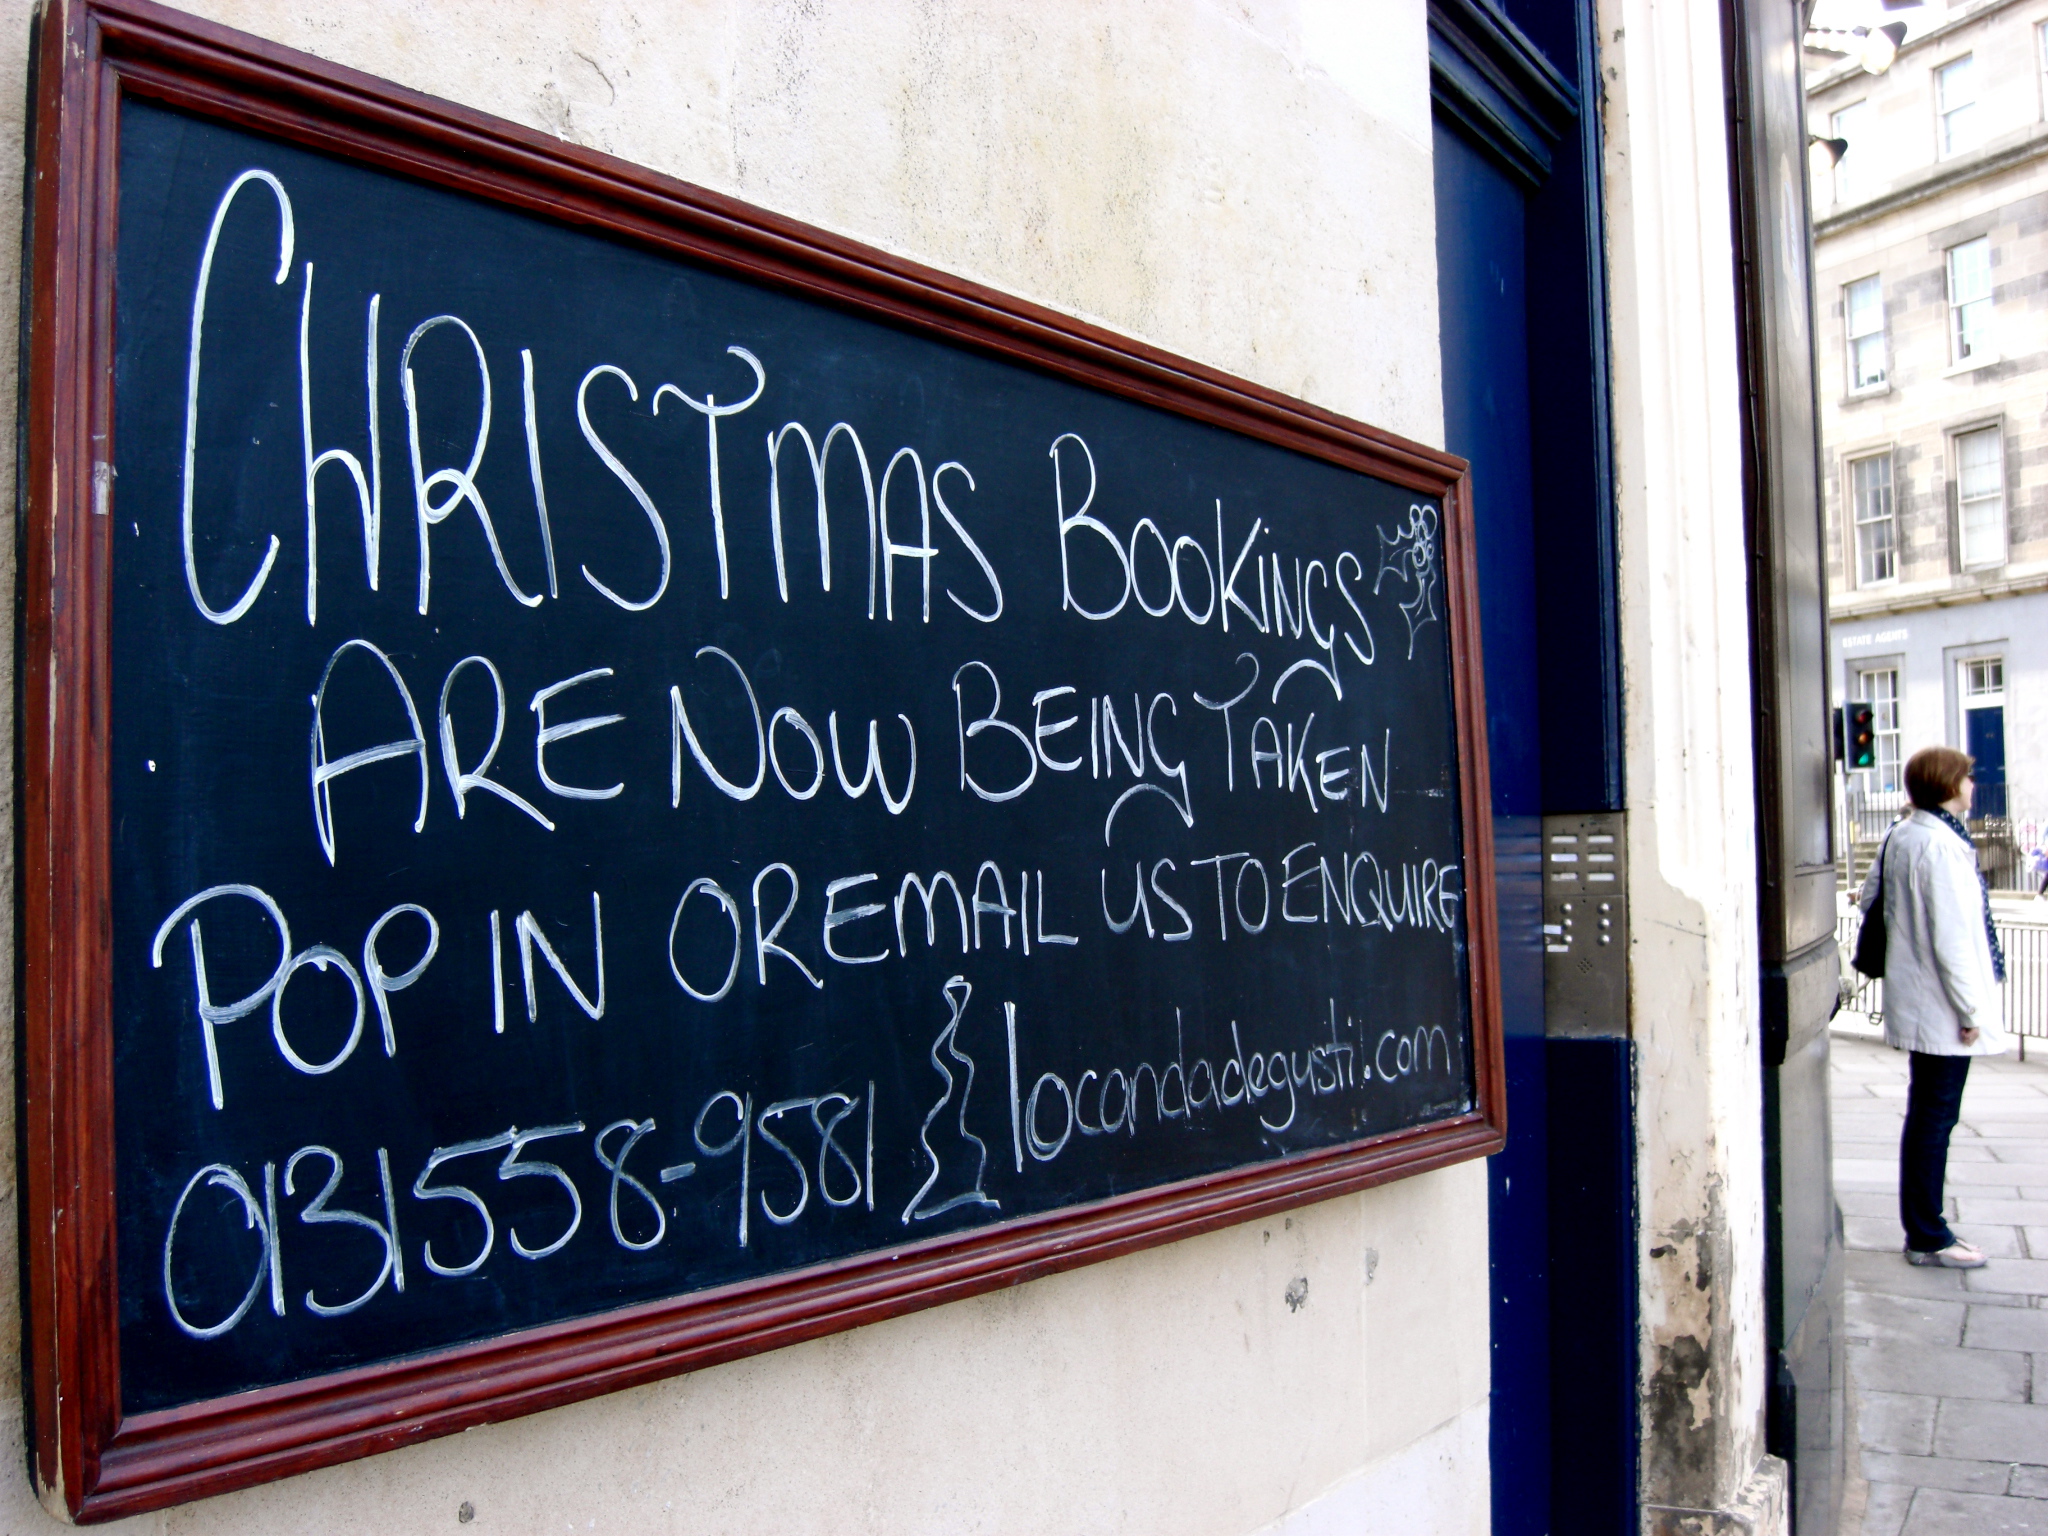 CHRISTMAS BOOKINGS
ARE NOW BEING TAKEN
POP IN OR EMAIL US TO ENQUIRE
0131558-9581 locandadegusti.com
ESTATE AGENTS